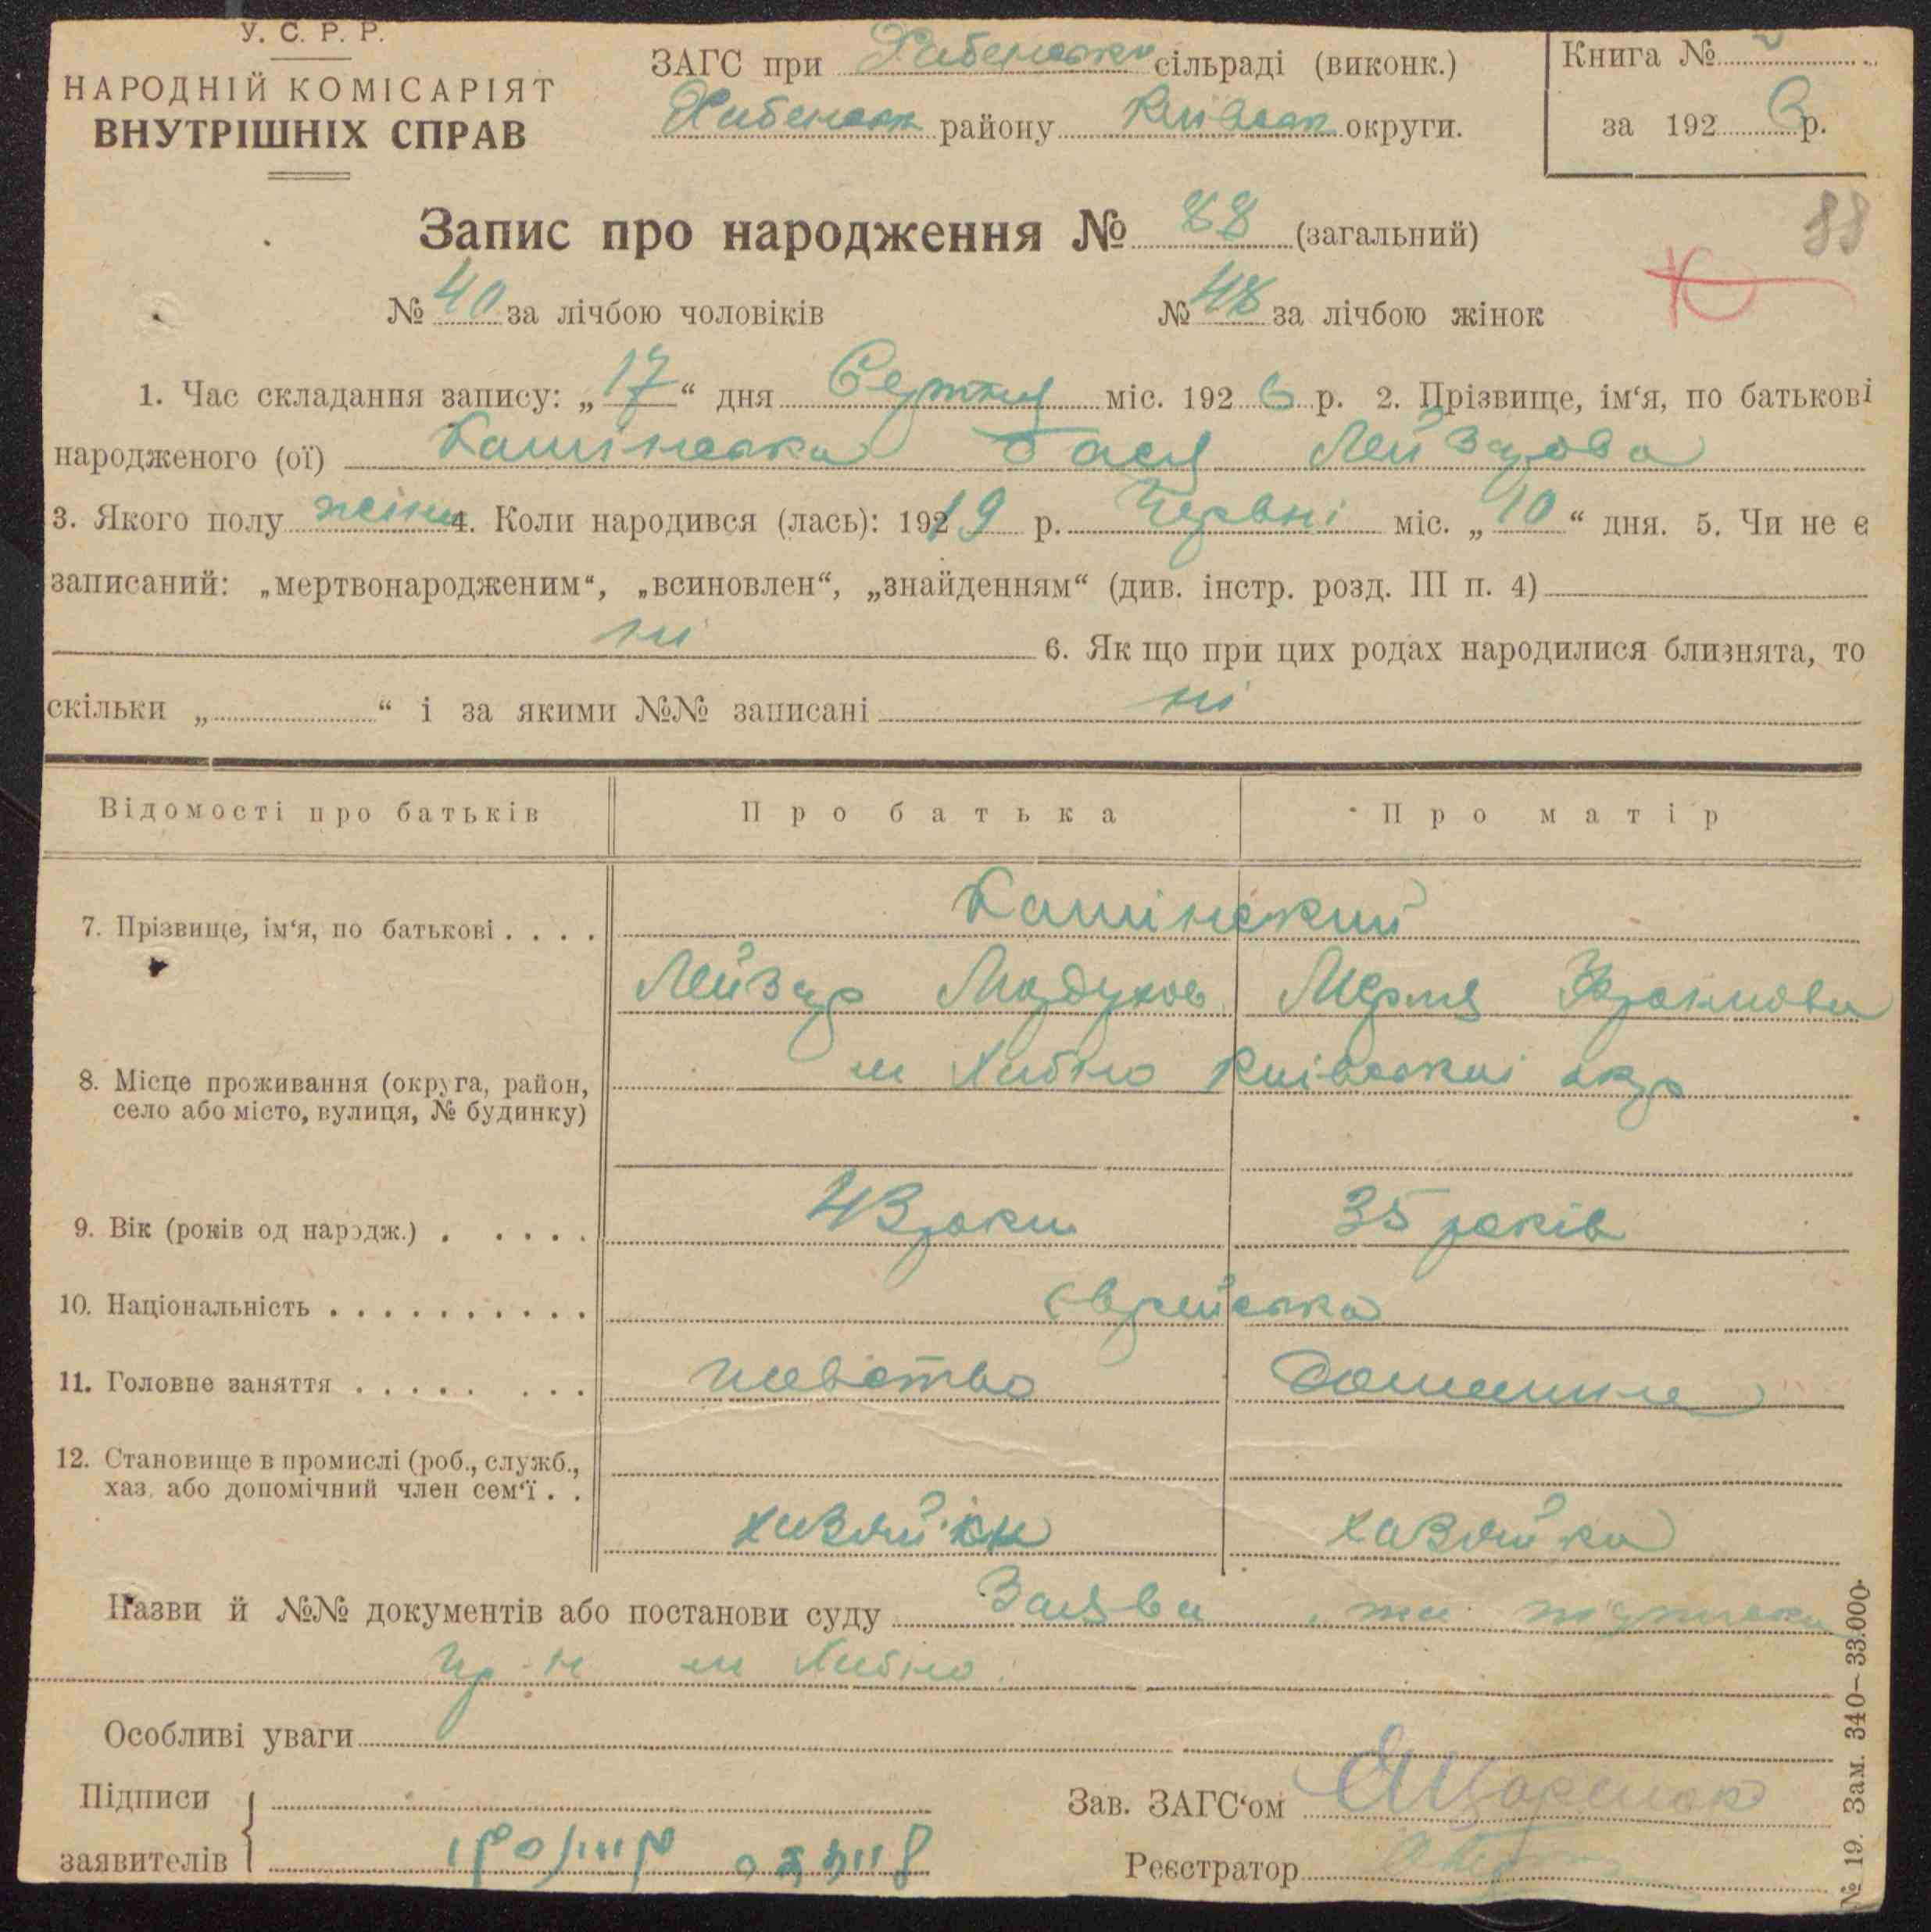 У. С. Р. Р.
НАРОДНІЙ КОМІСАРІЯТ
ВНУТРІШНІХ СПРАВ
ЗАГС при Хабенські сільраді (виконк.)
Хабенськ району Київськ округи.
Книга №
за 192 6 р.
Запис про народження № 88 (загальний)
88
№ 40 за лічбою чоловіків № 48 за лічбою жінок
1. Час складання запису: „ 17 “ дня Серпня міс. 192 6 р. 2. Прізвище, ім‘я, по батькові
народженого (ої) Камінська Бася Лейзерова
3. Якого полу жіноч 4. Коли народився (лась): 1919 р. Червні міс. „ 10 “ дня. 5. Чи не є
записаний: „мертвонародженим“, „всиновлен“, „знайденням“ (див. інстр. розд. III п. 4)
ні 6. Як що при цих родах народилися близнята, то
скільки „ “ і за якими №№ записані ні
Відомості про батьків Про батька Про матір
7. Прізвище, ім‘я, по батькові . . . . Камінский
Лейзер Мордухов Меря
8. Місце проживання (округа, район,
село або місто, вулиця, № будинку) м Хабно Київської окр
9. Вік (років од народж.) . . . . . 43 роки 35 років
10. Національність . . . . . . . . . . Єврейська
11. Головне заняття . . . . . . . . шевство Домашнє
12. Становище в промислі (роб., служб.,
хаз. або допомічний член сем‘ї . .
хазяїн хазяйка
Назви й №№ документів або постанови суду Заява та
гр-н м Хабно
Особливі уваги
Підписи
заявителів
Зав. ЗАГС‘ом
Реєстратор
№ 19. Зам. 340—33.000.